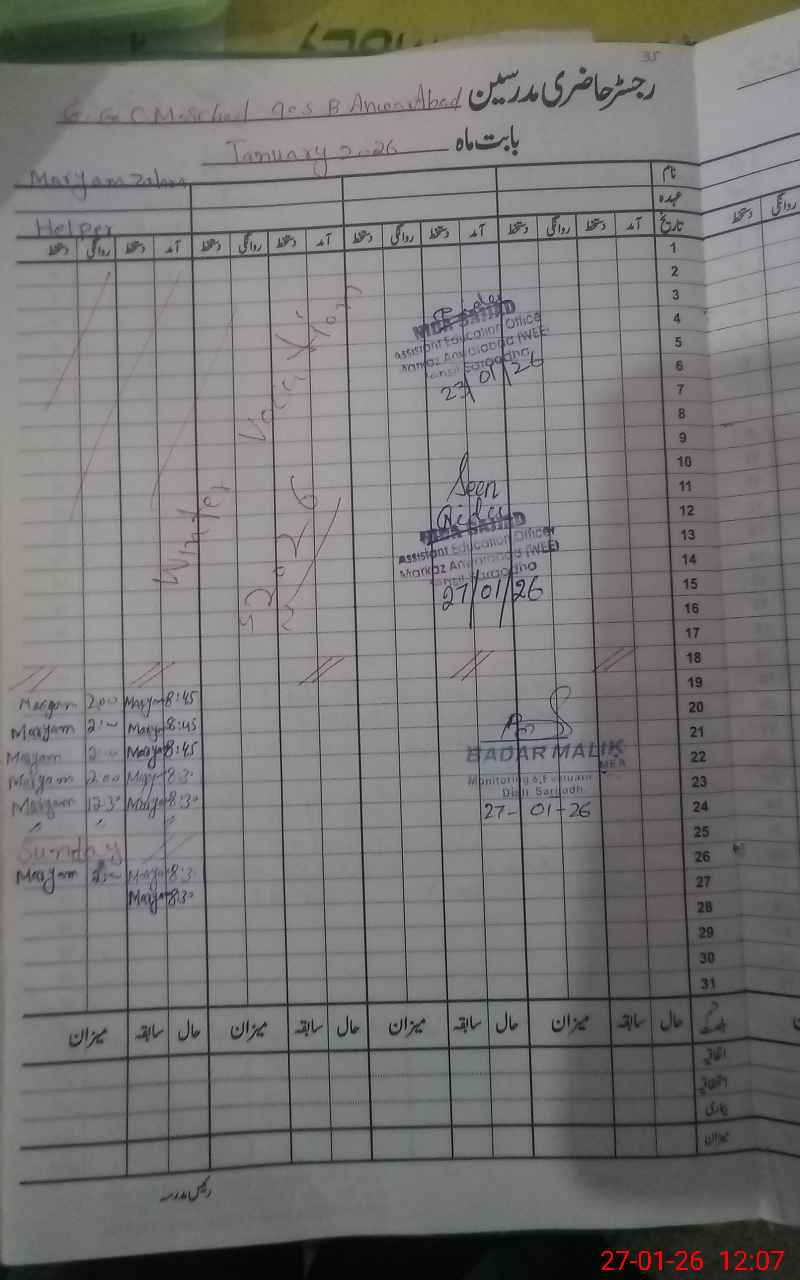 35
رجسٹر حاضری مدرسین G. G C M. School 90 S B Anwar Abad
بابت ماہ January 2026
نام Maryam Zahra
عہدہ Helper
تاریخ آمد دستخط روانگی دستخط آمد دستخط روانگی دستخط آمد دستخط روانگی دستخط آمد دستخط روانگی دستخط
دستخط روانگی
1
2
3
4
5
6
7
8
9
10
11
12
13
14
15
16
17
18
19
20
21
22
23
24
25
26
27
28
29
30
31
Winter Vacation
2026
Assistant Education Officer
Markaz Anwarabad (WEE)
Tehsil Sargodha
23/01/26
Seen
Assistant Education Officer
Markaz Anwarabad (WEE)
Tehsil Sargodha
27/01/26
BADAR MALIK
MEA
Monitoring & Evaluation
Distt Sargodh
27-01-26
Maryam 2:00 Maryam 8:45
Maryam 2:00 Maryam 8:45
Maryam 2:00 Maryam 8:45
Maryam 2:00 Maryam 8:30
Maryam 12:30 Maryam 8:30
Sunday
Maryam 2:00 Maryam 8:30
Maryam 8:30
حال سابقہ میزان حال سابقہ میزان حال سابقہ میزان حال سابقہ میزان
اتفاقیہ
بیماری
میزان
رئیس مدرسہ
27-01-26 12:07